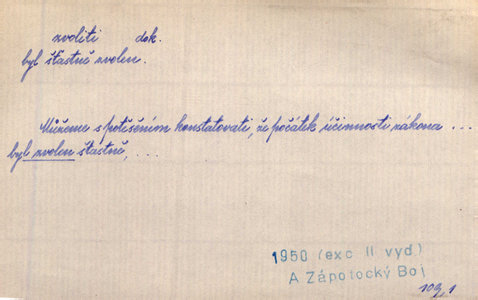 zvoliti dok.
byl šťastně zvolen.
Můžeme s potěšením konstatovati, že počátek účinnosti zákona ...
byl zvolen šťastně, ...
1950 (exc II vyd)
A Zápotocký Boj
109,1